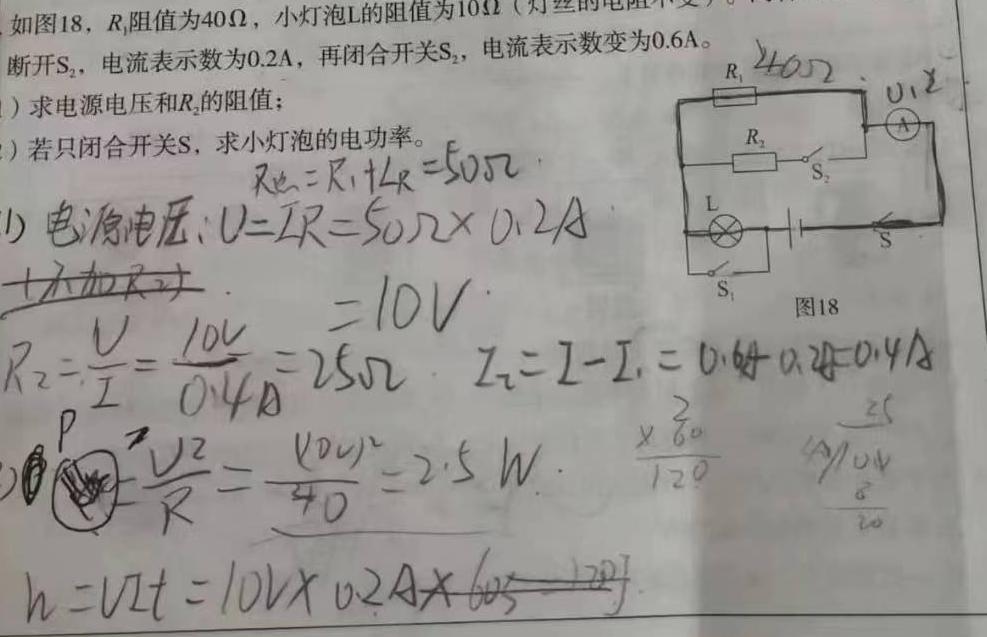 如图18，R₁阻值为40Ω，小灯泡L的阻值为10Ω（灯丝的电阻不变）。
断开S₂，电流表示数为0.2A，再闭合开关S₂，电流表示数变为0.6A。
）求电源电压和R₂的阻值；
）若只闭合开关S，求小灯泡的电功率。
R₁ 40Ω
A
R₂
S₂
L
S
S₁
图18
R总=R₁+LR=50Ω
1) 电源电压：U=IR=50Ω×0.2A
=10V
R₂=U/I=10V/0.4A=25Ω I₂=I-I₁=0.6A-0.2A=0.4A
P=U²/R=(10V)²/40=2.5W.
2
×60
120
25
8
20
W=UIt=10V×0.2A×60s=120J